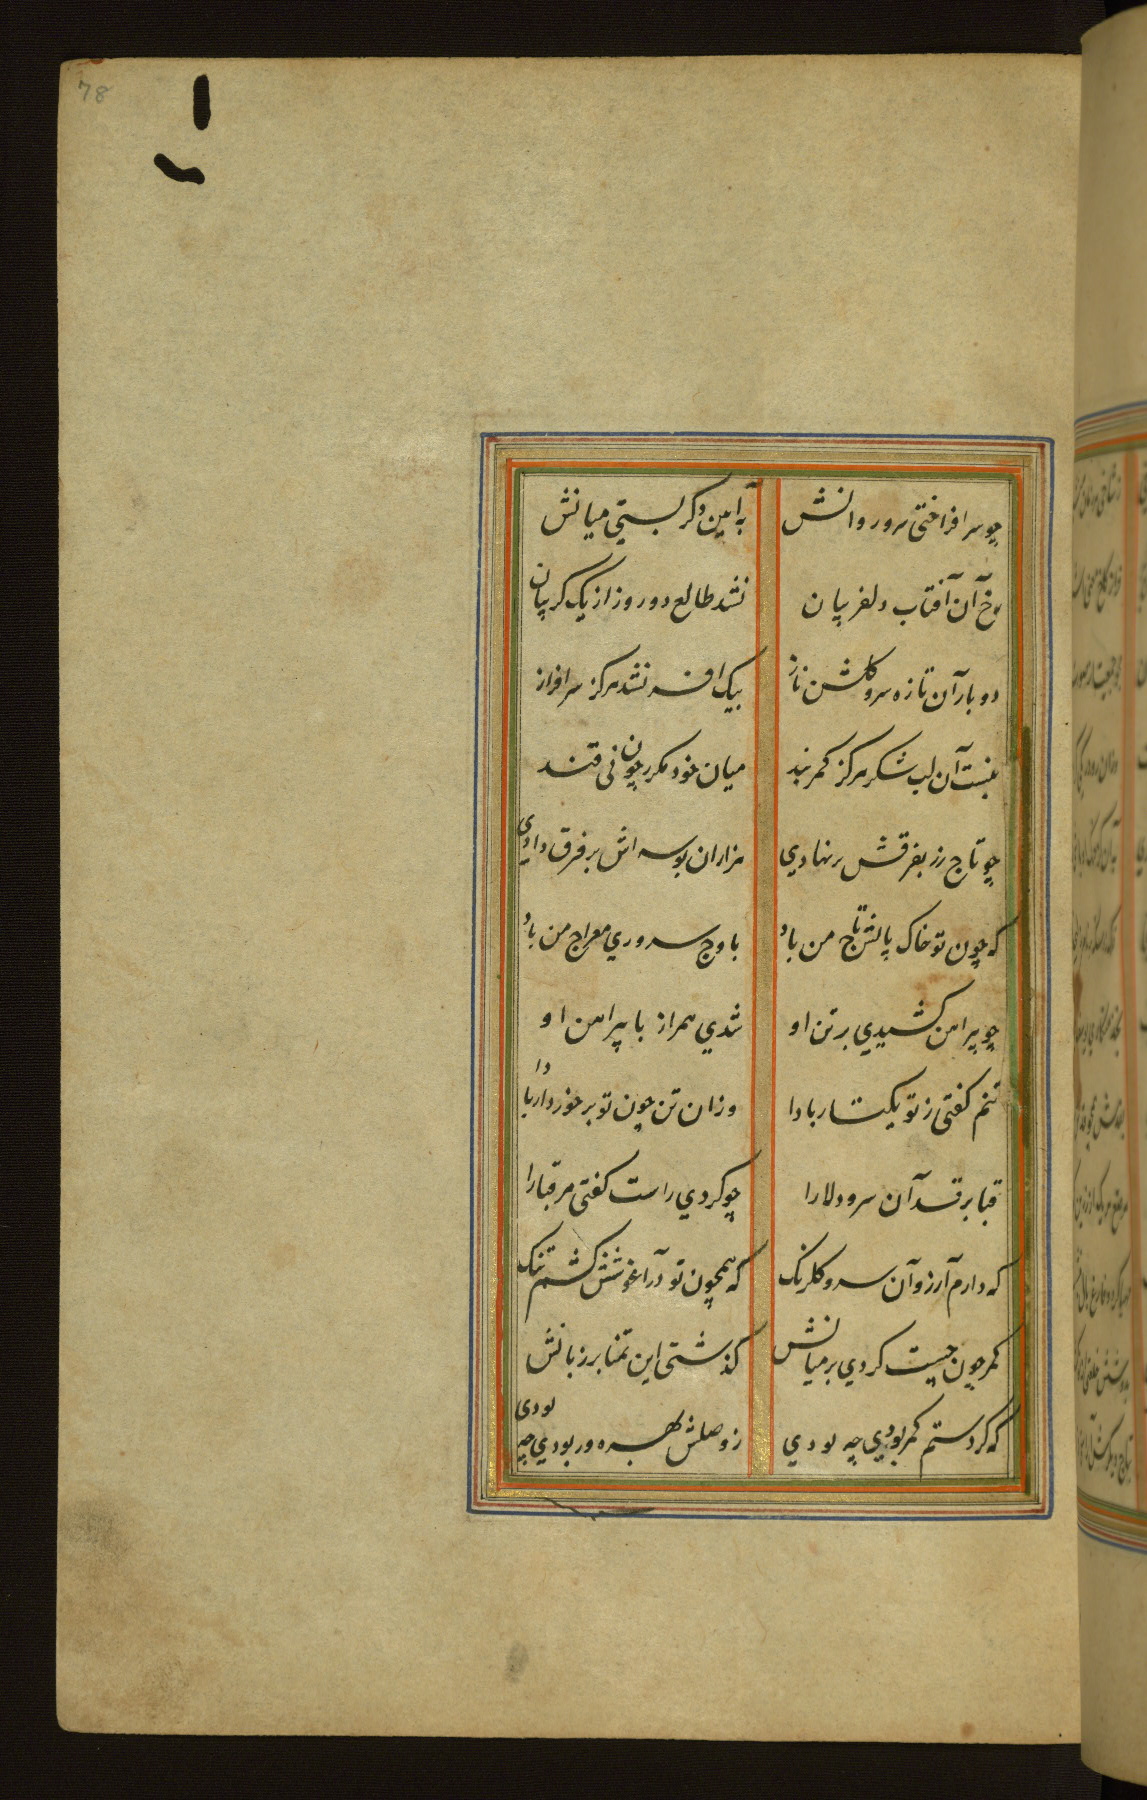 78
چو سر افراختی سرو روانش به آیین دگر بستی میانش
رخ آن آفتاب دلفریبان نشد طالع دو روز از یک گریبان
دو بار آن تازه سرو گلشن ناز بیک افسر نشد هرگز سرافراز
نبست آن لب شکر هرگز کمربند میان خود مکرر چون نی قند
چو تاج زر بفرقش بر نهادی هزاران بوسه اش بر فرق دادی
که چون تو خاک پایش تاج من باد باوج سروری معراج من باد
چو پیراهن کشیدی بر تن او شدی همراز با پیراهن او
تنم گفتی ز تو یکتار بادا وزان تن چون تو برخوردار بادا
قبا بر قد آن سرو دلارا چو کردی راست گفتی مر قبا را
که دارم آرزو آن سرو گلرنگ که همچون تو در آغوشش کشم تنگ
کمر چون چست کردی بر میانش گذشتی این تمنا بر زبانش
که گر دستم کمر بودی چه بودی ز وصلش بهره ور بودی چه بودی